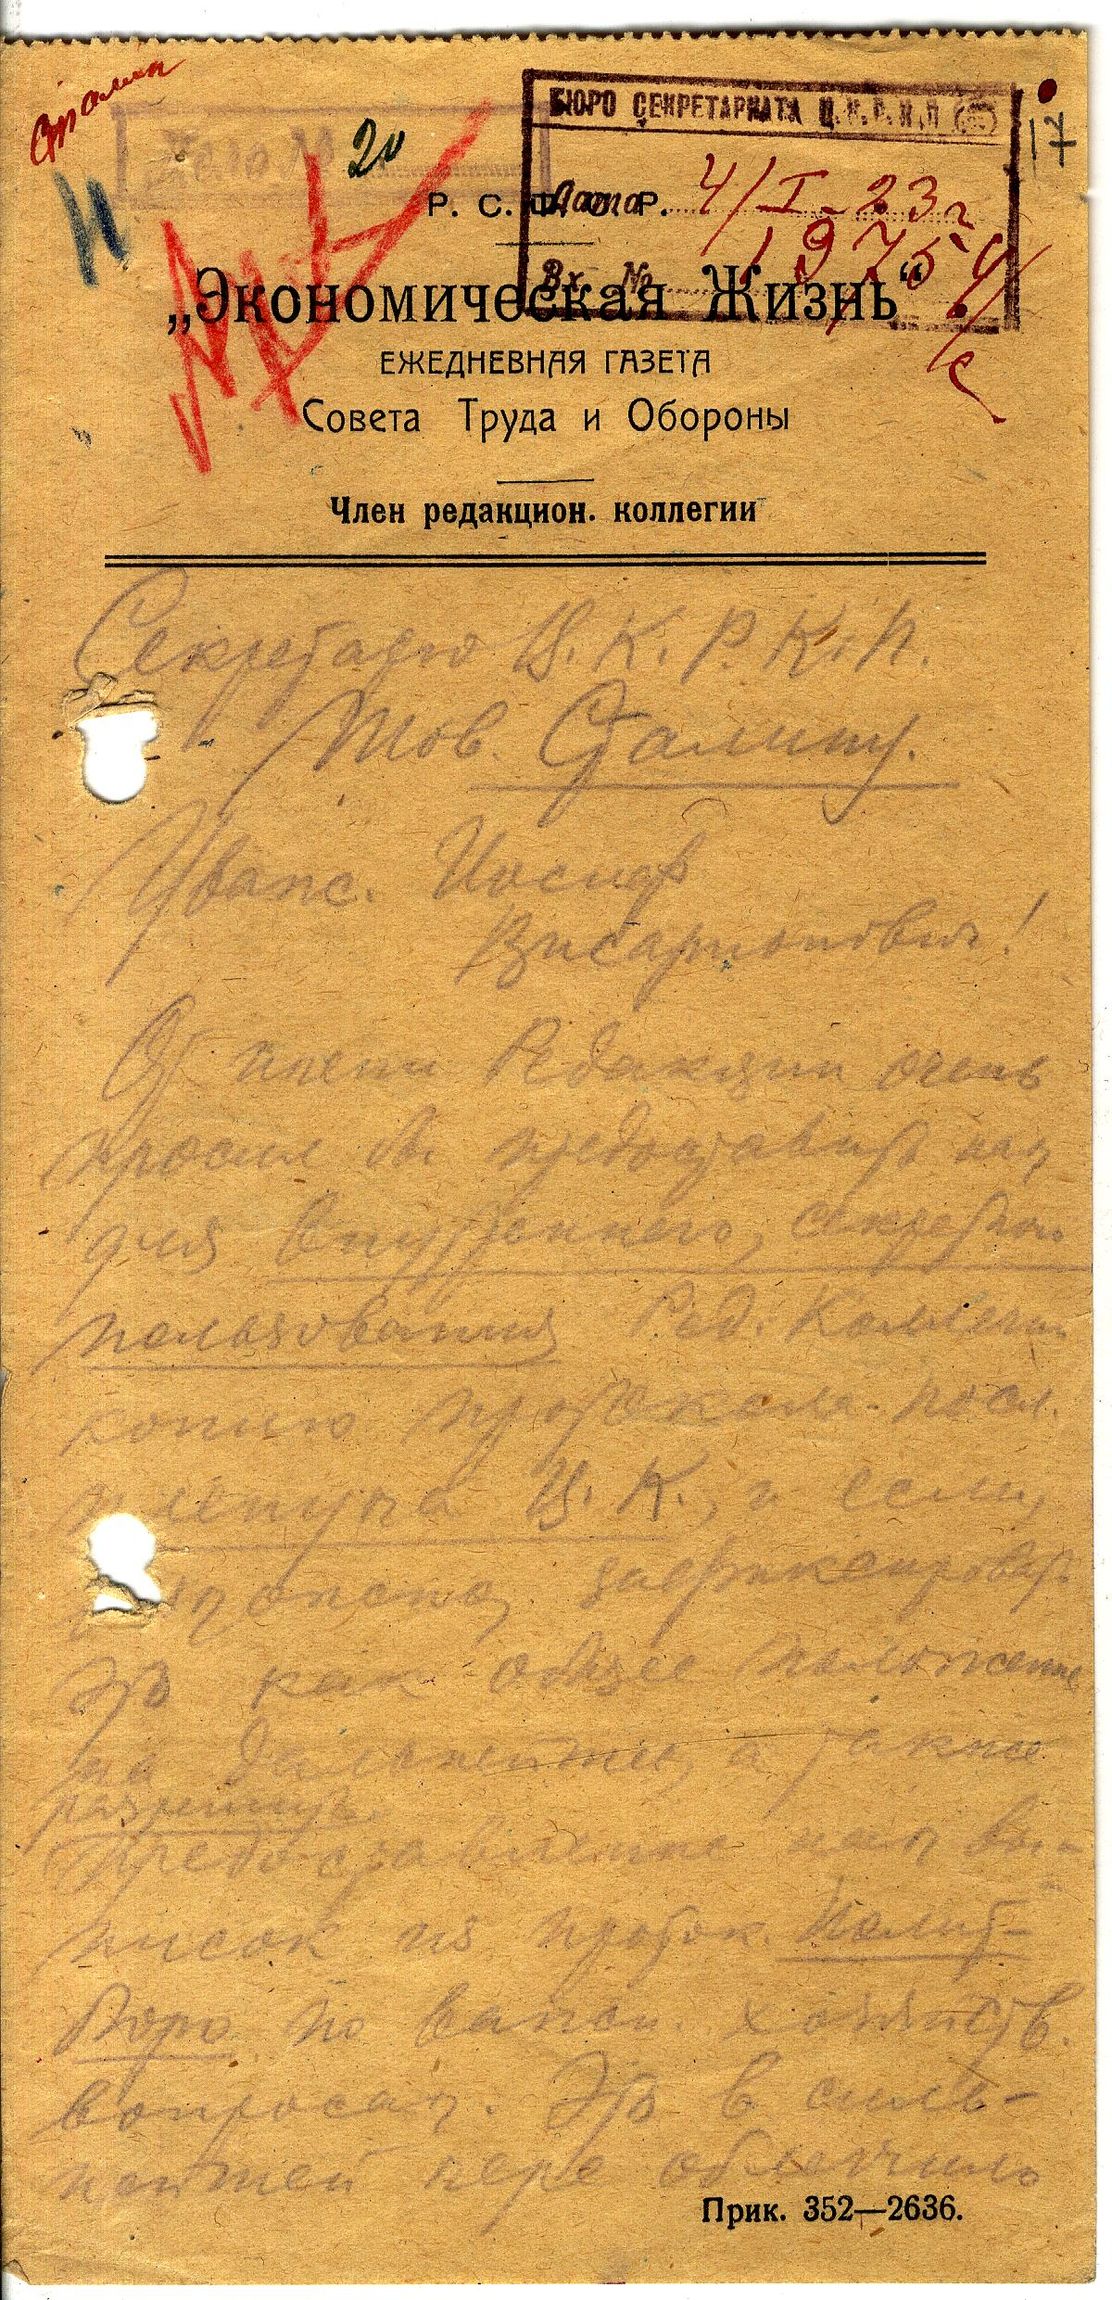 Сталин
20
17
БЮРО СЕКРЕТАРИАТА Ц.К.Р.К.П.
Дата 4/I-23г
Вх. № 19754/с
Р. С. Ф. С. Р.
„Экономическая Жизнь“
ЕЖЕДНЕВНАЯ ГАЗЕТА
Совета Труда и Обороны
Член редакцион. коллегии
Секретарю Ц. К. Р. К. П.
Тов. Сталину.
Уважс. Иосиф
Висарионович!
От имени Редакции очень
просил бы предоставить нам
для внутреннего, секретного
пользования Ред. Коллегии
копию протокола посл.
пленума Ц. К., и если,
зафиксировать
это как общее положение
на дальнейшее, а также
разрешить
предоставление нам вы-
писок из проток. Полит-
бюро по важн. хозяйств.
вопросам. Это в силь-
нейшей мере облегчило
Прик. 352—2636.